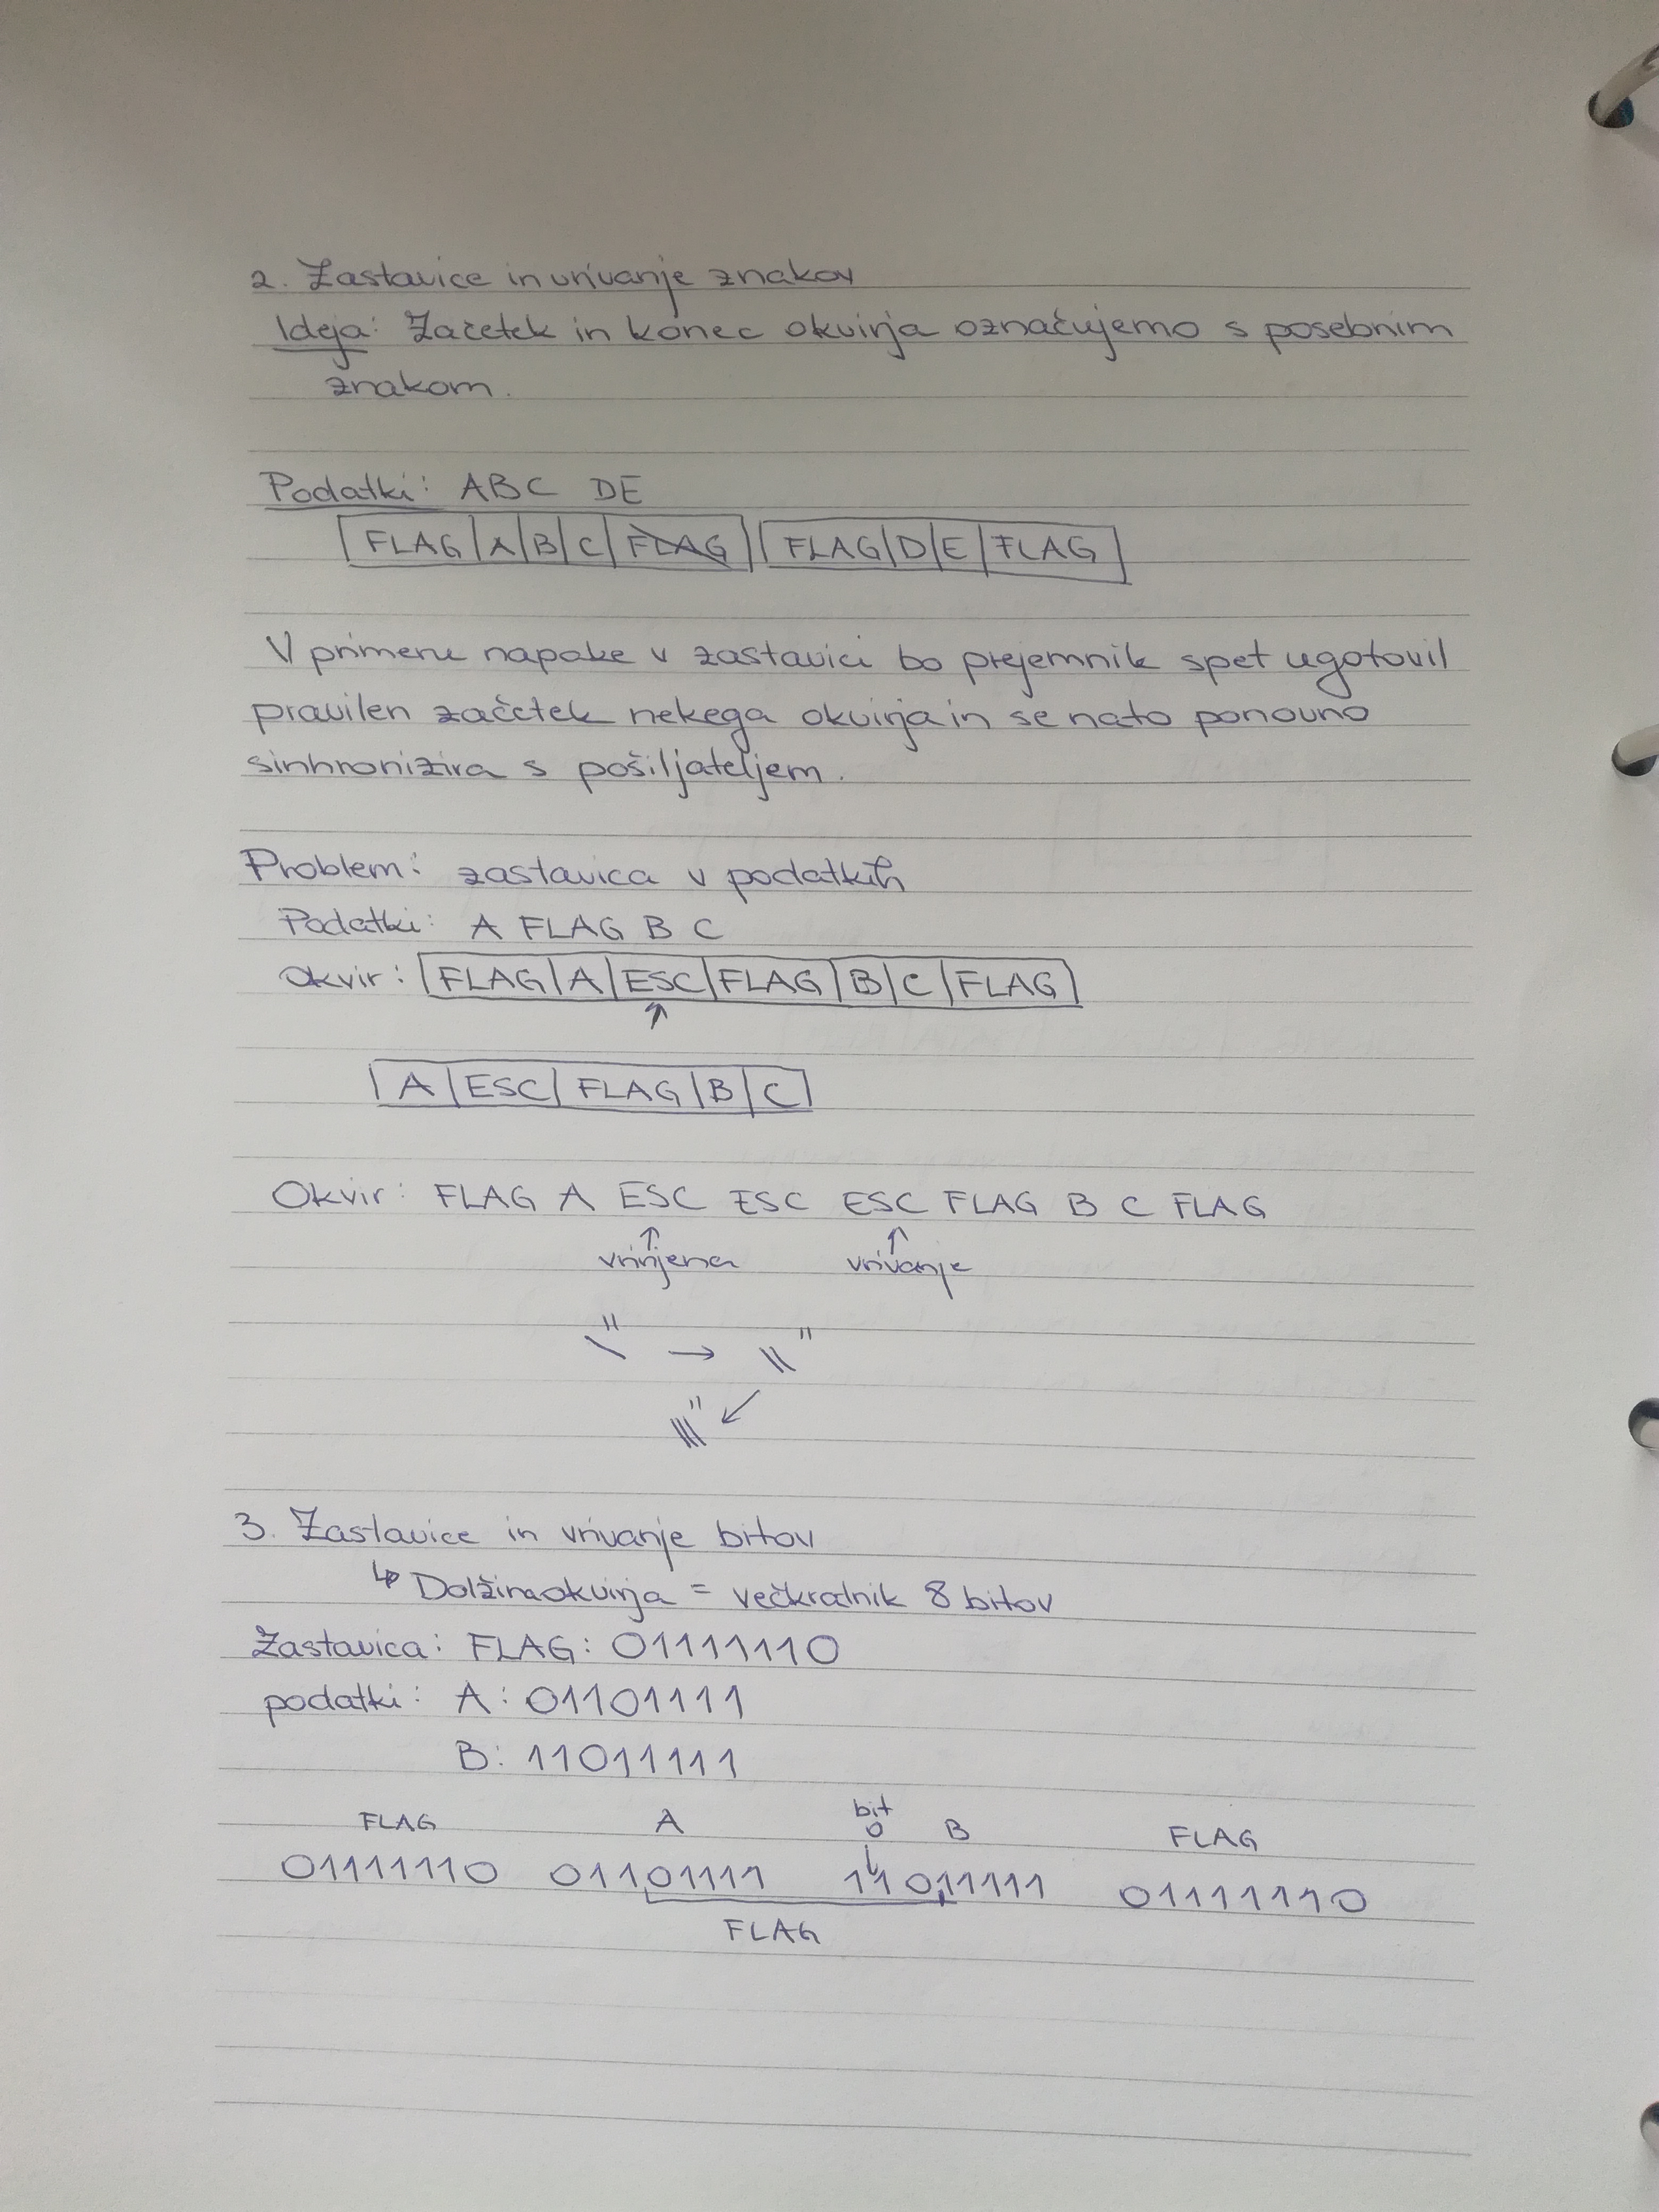 2. Zastavice in vrivanje znakov
Ideja: Začetek in konec okvirja označujemo s posebnim
znakom.
Podatki: ABC DE
FLAG A B C FLAG FLAG D E FLAG
V primeru napake v zastavici bo prejemnik spet ugotovil
pravilen začetek nekega okvirja in se nato ponovno
sinhronizira s pošiljateljem.
Problem: zastavica v podatkih
Podatki: A FLAG B C
Okvir: FLAG A ESC FLAG B C FLAG
↑
A ESC FLAG B C
Okvir: FLAG A ESC ESC ESC FLAG B C FLAG
↑ ↑
vrinjena vrivanje
\" → \\"
\\\" ↙
3. Zastavice in vrivanje bitov
↳ Dolžina okvirja = večkratnik 8 bitov
Zastavica: FLAG: 01111110
podatki: A: 01101111
B: 11011111
FLAG A bit 0 B FLAG
01111110 01101111 11011111 01111110
FLAG